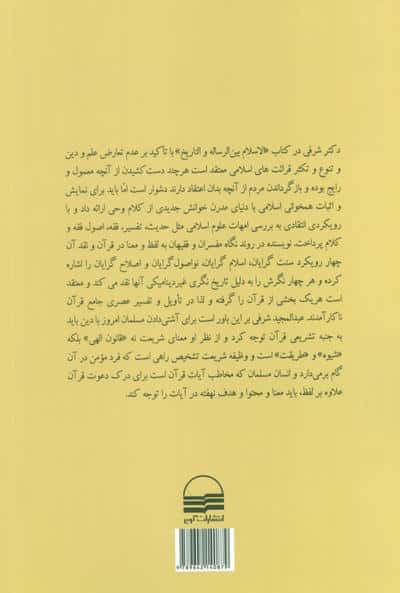 دکتر شرفی در کتاب «الاسلام بین‌الرساله و التاریخ» با تأکید بر عدم تعارض علم و دین
و تنوع و تکثر قرائت های اسلامی معتقد است هرچند دست کشیدن از آنچه معمول و
رایج بوده و بازگرداندن مردم از آنچه بدان اعتقاد دارند دشوار است امّا باید برای نمایش
و اثبات همخوانی اسلامی با دنیای مدرن خوانش جدیدی از کلام وحی ارائه داد و با
رویکردی انتقادی به بررسی امهات علوم اسلامی مثل حدیث، تفسیر، فقه، اصول فقه و
کلام پرداخت. نویسنده در روند نگاه مفسران و فقیهان به لفظ و معنا در قرآن و نقد آن
چهار رویکرد سنت گرایان، اسلام گرایان، نواصول‌گرایان و اصلاح گرایان را اشاره
کرده و هر چهار نگرش را به دلیل تاریخ نگری غیردینامیکی آنها نقد می کند و معتقد
است هریک بخشی از قرآن را گرفته و لذا در تأویل و تفسیر عصری جامع قرآن
ناکارآمدند. عبدالمجید شرفی بر این باور است برای آشتی‌دادن مسلمان امروز با دین باید
به جنبه تشریعی قرآن توجه کرد و از نظر او معنای شریعت نه «قانون الهی» بلکه
«شیوه» و «طریقت» است و وظیفه شریعت تشخیص راهی است که فرد مؤمن در آن
گام برمی‌دارد و انسان مسلمان که مخاطب آیات قرآن است برای درک دعوت قرآن
علاوه بر لفظ، باید معنا و محتوا و هدف نهفته در آیات را توجه کند.
انتشارات کویر